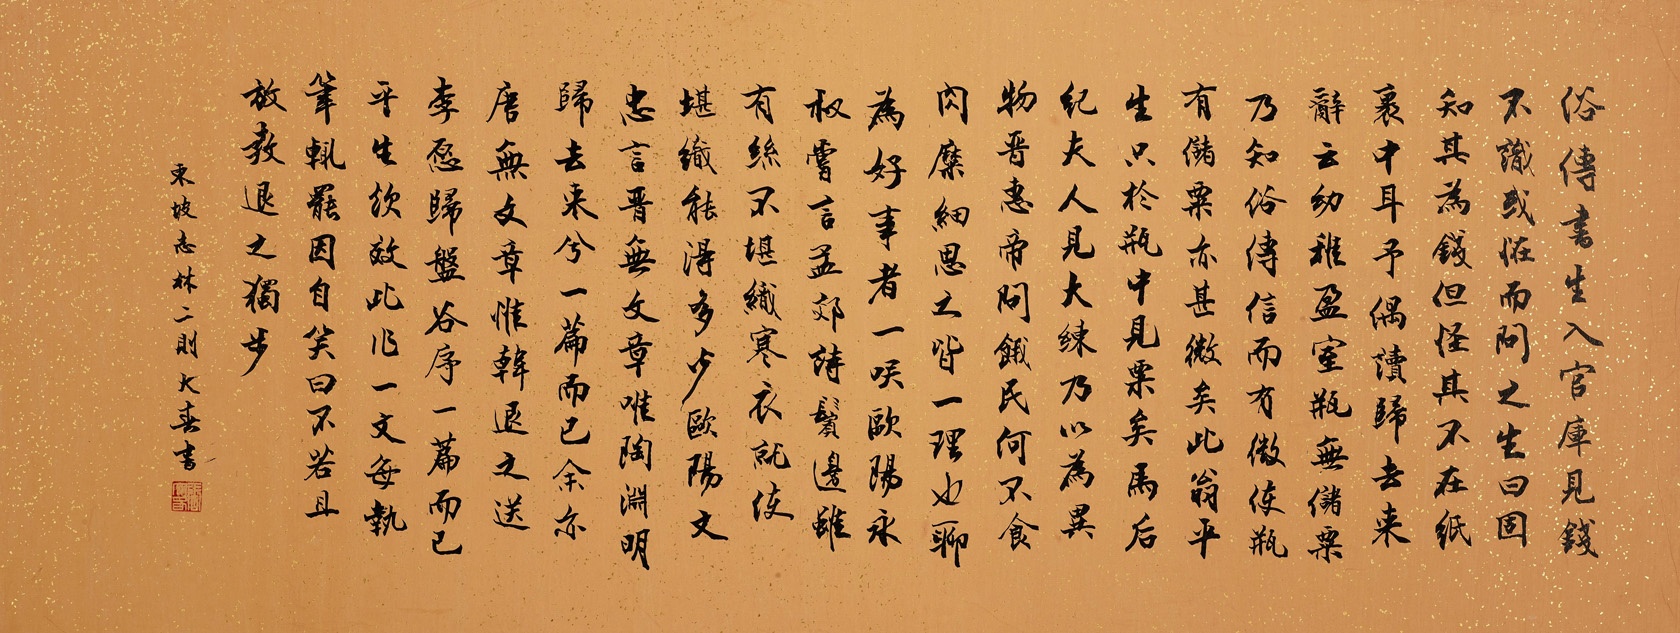 俗傳書生入官庫見錢
不識或怪而問之生曰固
知其為錢但怪其不在紙
裹中耳予偶讀歸去来
辭云幼稚盈室瓶無儲粟
乃知俗傳信而有微使瓶
有儲粟亦甚微矣此翁平
生只於瓶中見粟矣馬后
紀夫人見大練乃以為異
物晋惠帝問餓民何不食
肉糜細思之皆一理也聊
為好事者一咲歐陽永
叔嘗言孟郊詩鬢邊雖
有絲不堪織寒衣就使
堪織能得多少歐陽文
忠言晋無文章唯陶淵明
歸去来兮一篇而已余亦
唐無文章惟韓退之送
李愿歸盤谷序一篇而已
平生欲效此作一文每執
筆輒罷因自笑曰不若且
放教退之獨步
東坡志林二則大春書